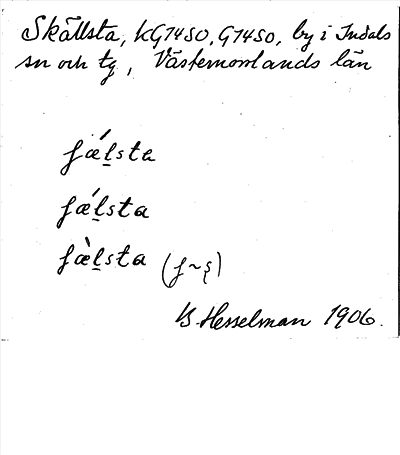 Skällsta, KG74SO, G74SO, by i Indals
sn och tg, Västernorrlands län
ʃǽl̠sta
ʃǽl̠sta
ʃæ̀l̠sta (ʃ~ş)
B. Hesselman 1906.